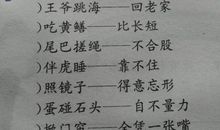 )王爷跳海——回老家
)吃黄鳝——比长短
)尾巴搓绳——不合股
)伴虎睡——靠不住
)照镜子——得意忘形
)蛋碰石头——自不量力
门窗——全凭一张嘴